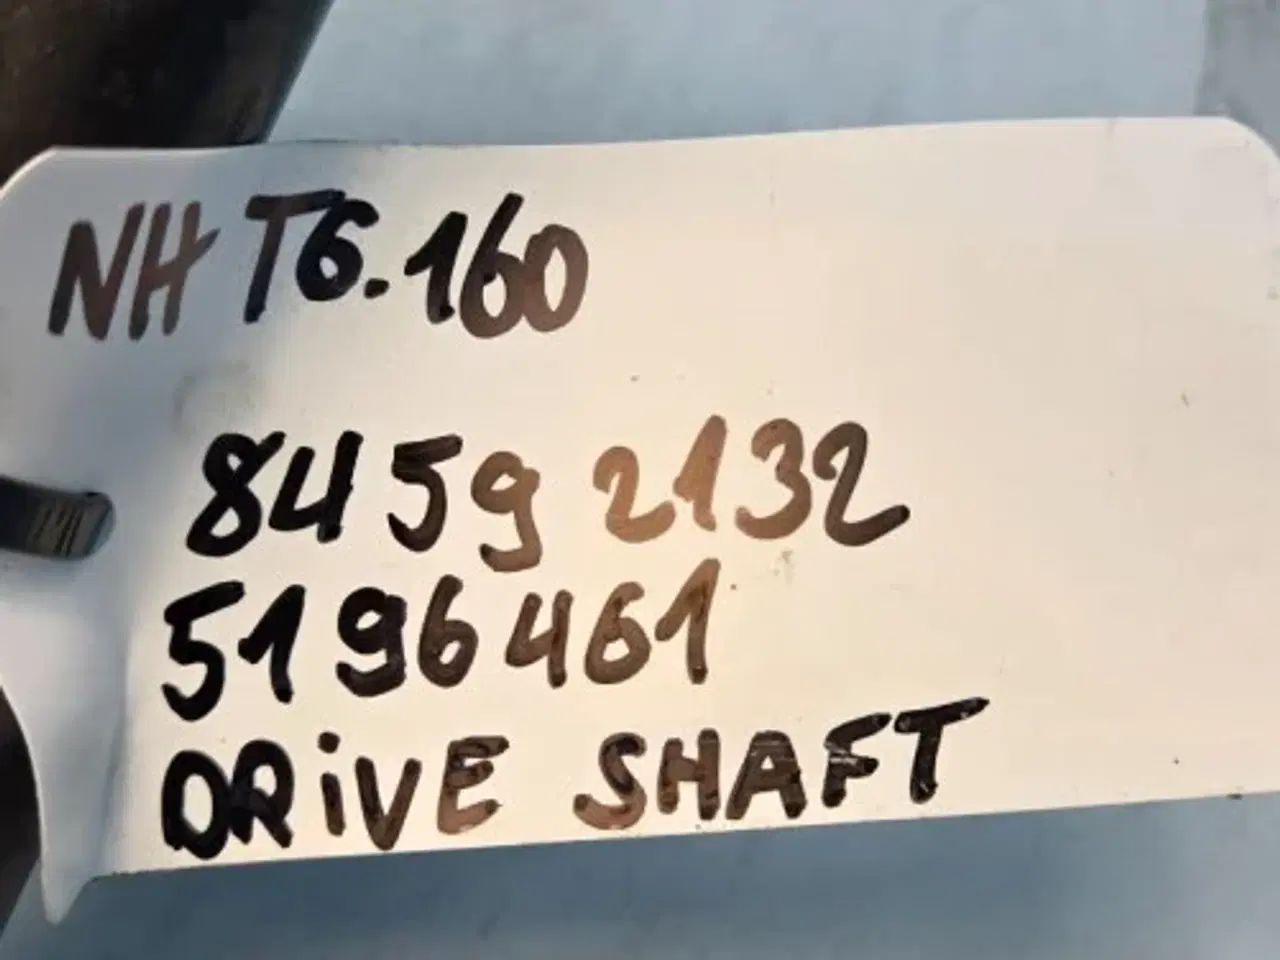 NH T6.160
84592132
5196461
DRiVE SHAFT